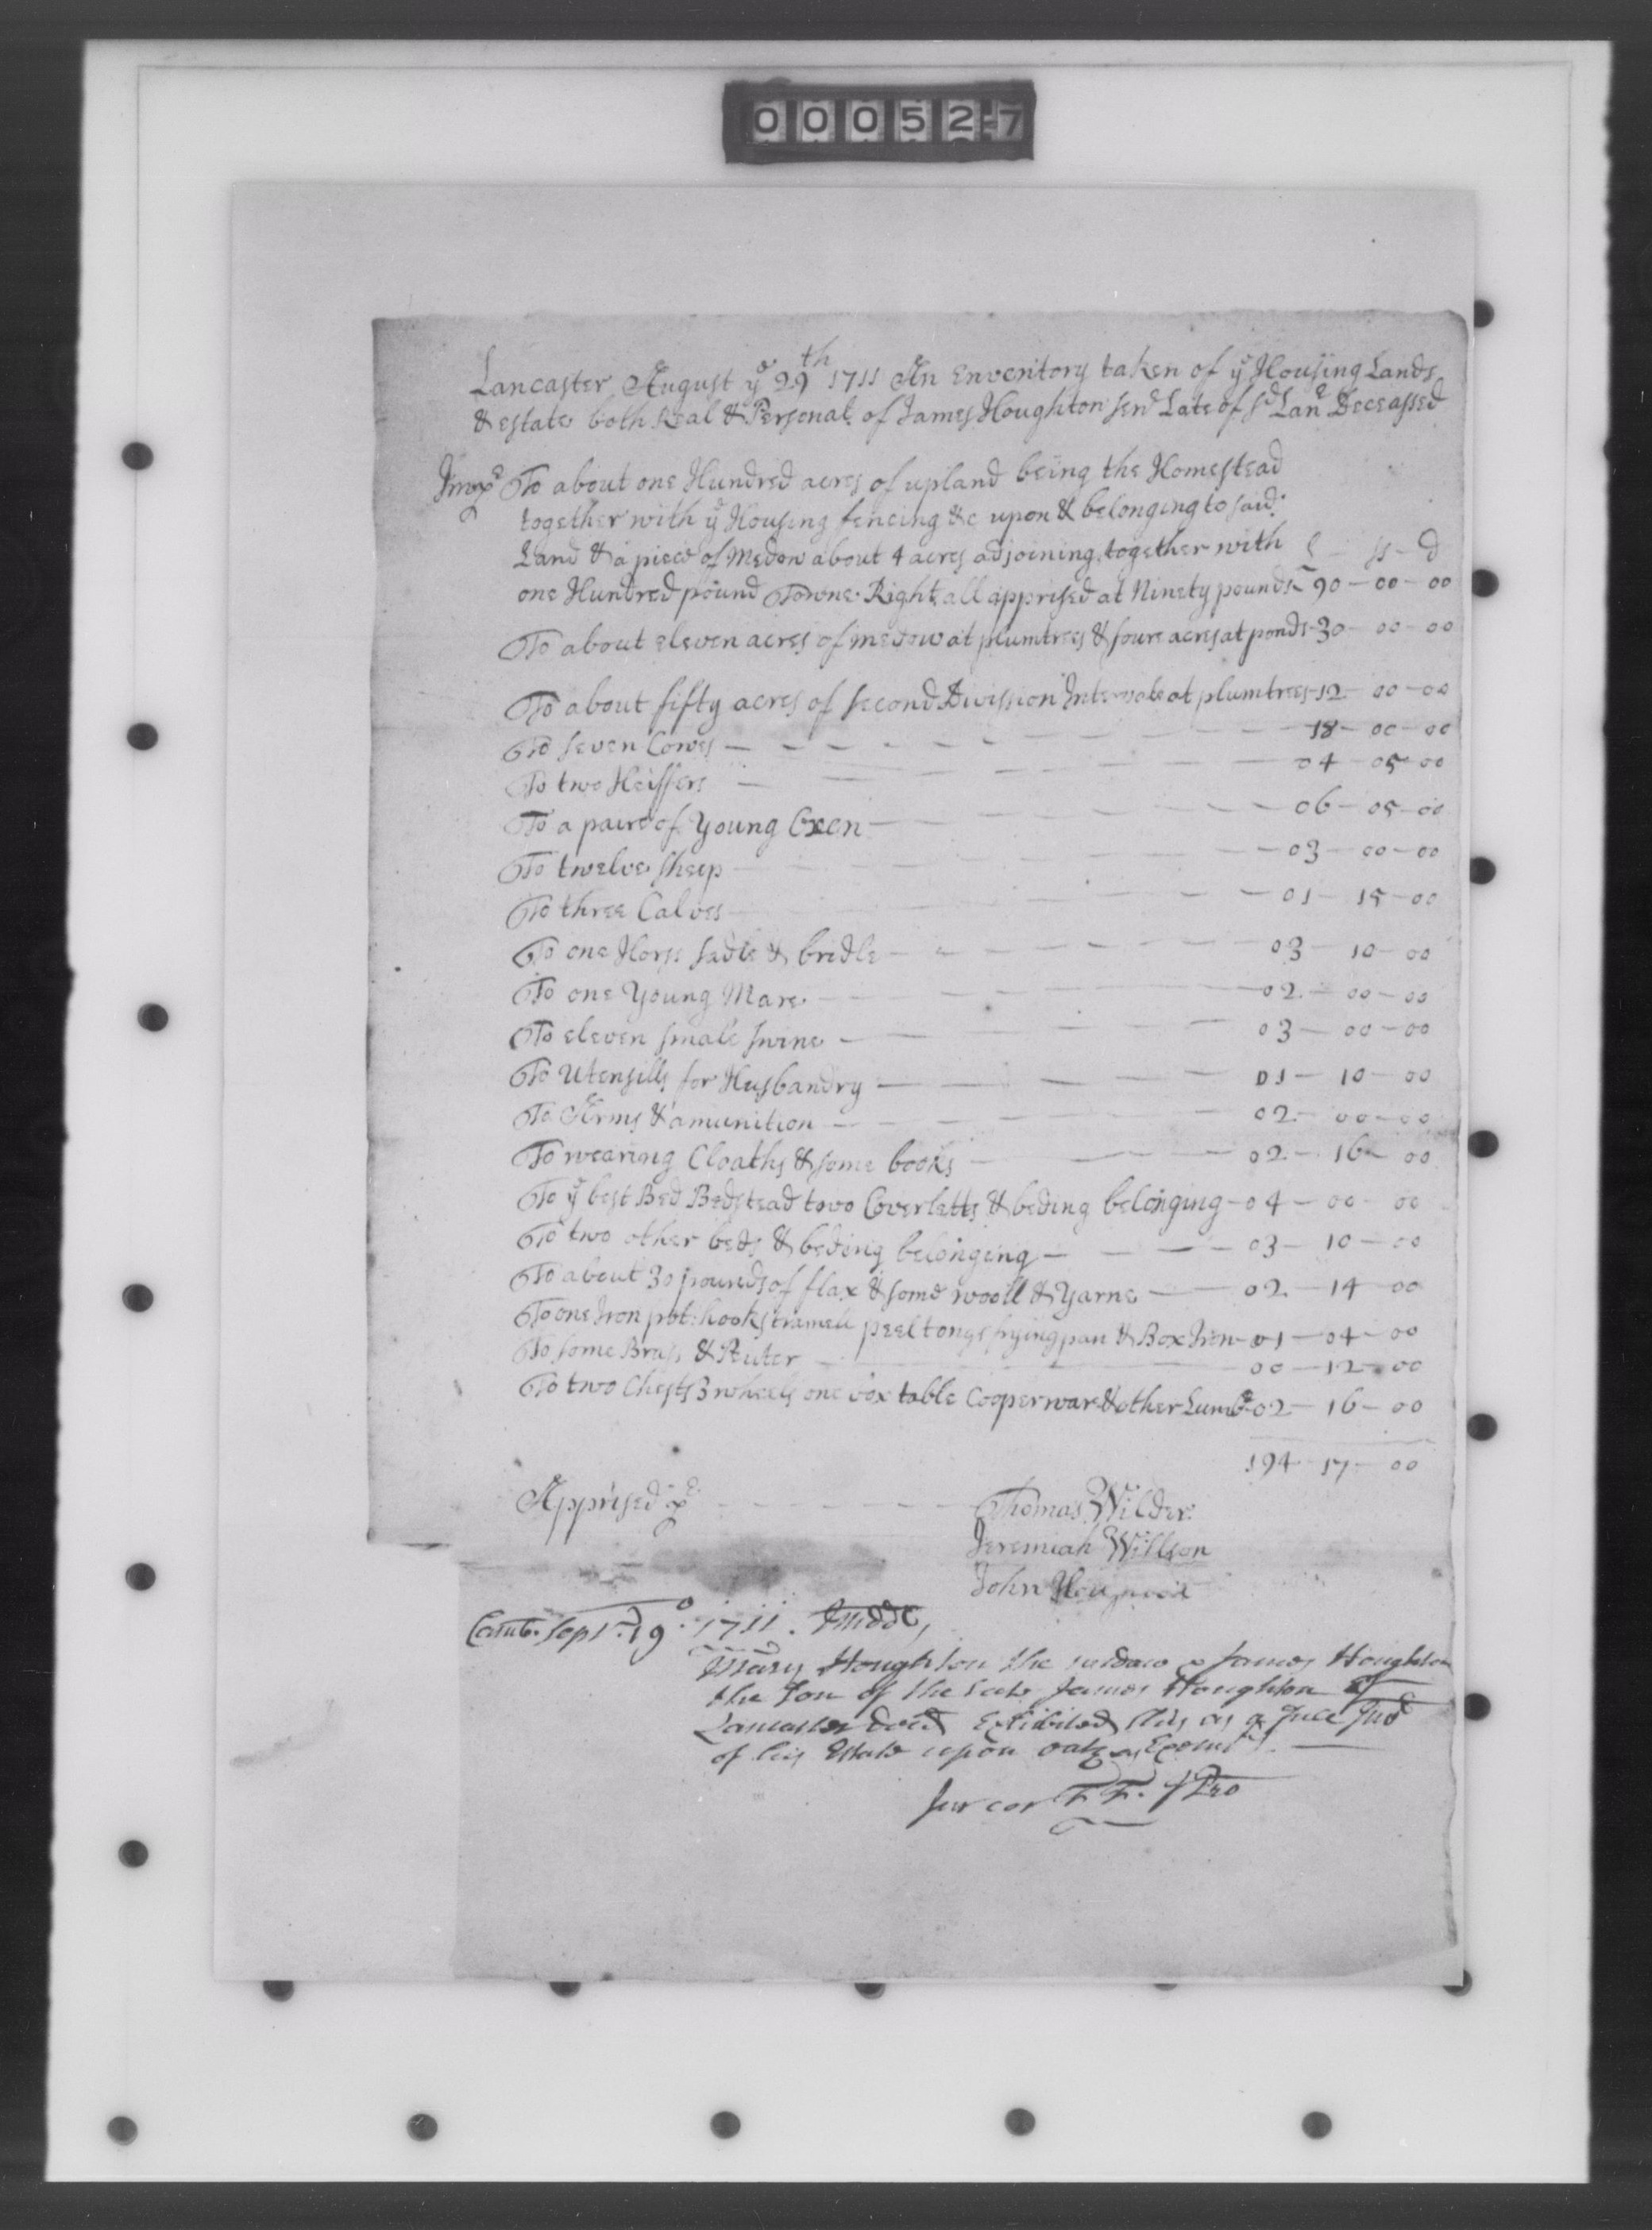 000527
Lancaster August ye 29th 1711 An Enventory taken of ye Housing Lands
& estate both Real & Personal of James Houghton senr Late of sd Lanr Deceassed
Impr To about one Hundred acres of upland being the Homestead
together with ye Housing fencing &c upon & belonging to said
Land & a piece of Medow about 4 acres adjoining together with £ ss d
one Hundred pound Towne Right all apprised at Ninety pounds 90 - 00 - 00
To about eleven acres of medow at plumtrees & foure acres at ponds 30 - 00 - 00
To about fifty acres of second Divission Intervale at plumtrees 12 - 00 - 00
To seven Cowes 18 - 00 - 00
To two Heiffers 04 - 05 - 00
To a paire of Young Oxen 06 - 05 - 00
To twelve sheep 03 - 00 - 00
To three Calves 01 - 15 - 00
To one Horse sadle & bridle 03 - 10 - 00
To one Young Mare 02 - 00 - 00
To eleven smale swine 03 - 00 - 00
To Utensills for Husbandry 01 - 10 - 00
To Arms & amunition 02 - 00 - 00
To wearing Cloaths & some books 02 - 16 - 00
To ye best Bed Bedstead two Coverletts & beding belonging 04 - 00 - 00
To two other beds & beding belonging 03 - 10 - 00
To about 30 pounds of flax & some wooll & Yarne 02 - 14 - 00
To one Iron pot hooks tramell peel tongs frying pan & Box Iron 01 - 04 - 00
To some Brass & Puter 00 - 12 - 00
To two Chests 3 wheels one box table Cooperware & other Lumbr 02 - 16 - 00
194 - 17 - 00
Apprised pr Thomas Wilder
Jeremiah Willson
John
Camb. Sept. 19o. 1711. Midd
Mary Houghton the widow & James Houghton
the Son of the late James Houghton of
Lancaster decd Exhibited this as a true Invd
of his Estate upon oath
Jur cor F F. J Pro